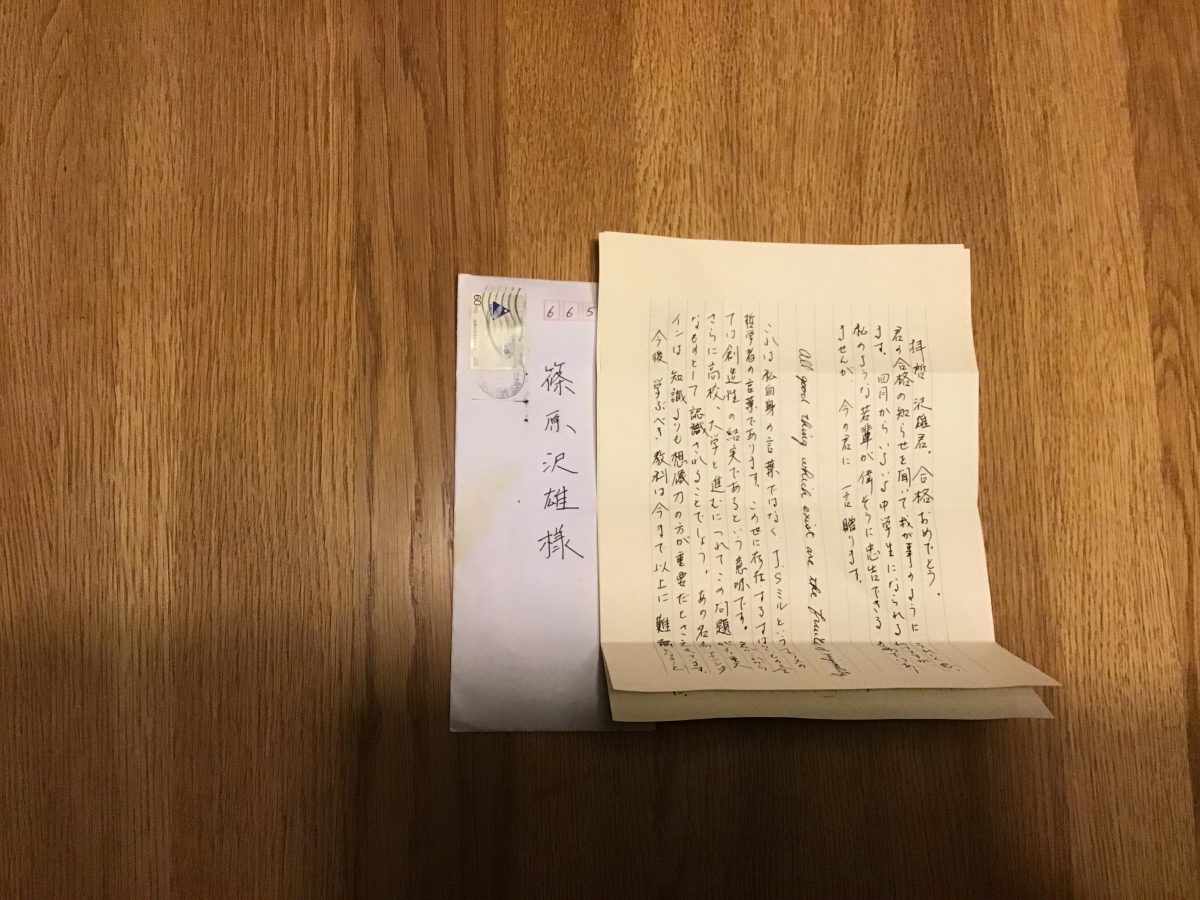 拝啓 沢雄君。合格おめでとう。
君の合格の知らせを聞いて我が事のように
ます。四月からいよいよ中学生になられる
私のような若輩が偉そうに忠告できる
ませんが、今の君に一言贈ります。
All good thing which exist are the fruits
これは私自身の言葉ではなく J.Sミルという
哲学者の言葉であります。この世に存在するすば
ては創造性の結実であるという意味です。
さらに高校、大学と進むにつれてこの問題が
なものとして認識されることでしょう。あの名
インは知識よりも想像力の方が重要だとさえ
今後 学ぶべき教科は今まで以上に 難
60
665
篠原沢雄様